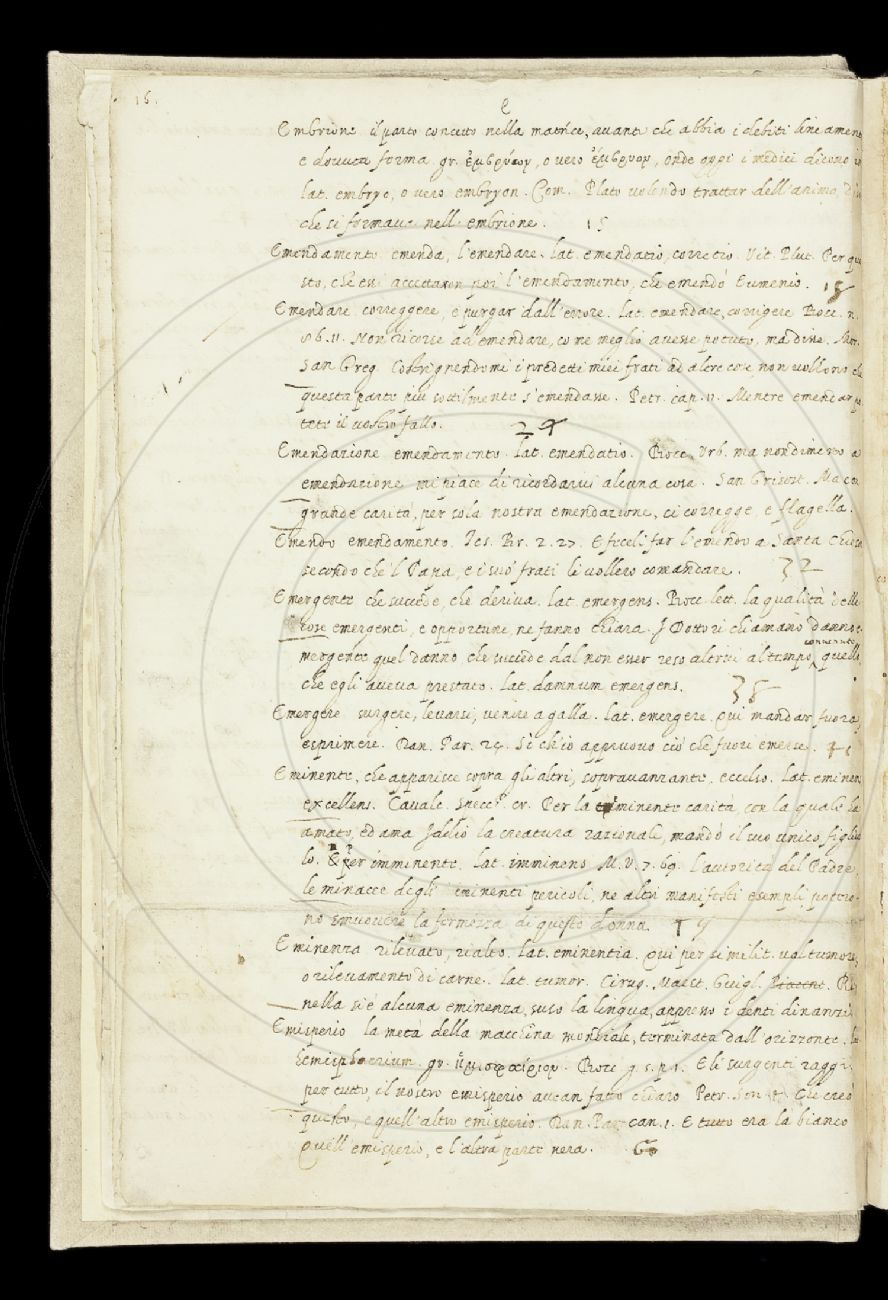 16.
E
Embrione il parto concetto nella matrice, avanti che abbia i debiti lineament
e dovuta forma gr. ἐμβρύιον, o vero ἔμβρυον, onde oggi i medici dicono in
lat. embryo, o vero embryon. Com. Plato volendo trattar dell'anima,
che si formava nell'embrione. 15
Emendamento emenda, l'emendare. lat. emendatio, correctio. Vit. Plut. Per que
sto, che essi accettaron poi l'emendamento, che emendò Eumenio. 18
Emendare correggere, e purgar dall'errore. lat. emendare, corrigere Bocc. n.
86.11. Non ricorse ad emendare, come meglio avesse potuto, ma disse. Mor.
San Greg. Costrignendomi i predetti miei frati ad altre cose, non vollono che
questa parte più sottilmente s'emendasse. Petr. cap. 11. Mentre emendar po
tete il vostro fallo. 24
Emendazione emendamento. lat. emendatio. Bocc. Urb. ma nondimeno a
emendazione mi piace di ricordarvi alcuna cosa. San Grisost. Ma con
grande carità, per sola nostra emendazione, ci corregge, e flagella.
Emendo emendamento. Tes. Br. 2.27. E feceli far l'emendo a Santa Chiesa
secondo che 'l Papa, e i suo' frati le vollero comandare. 32
Emergente che succede, che deriva. lat. emergens. Bocc. lett. la qualità delle
cose emergenti, e opportune, ne fanno chiara. I Dottori chiamano danno e
mergente quel danno che succede dal non esser reso altrui al tempo convenuto, quello
che egli aveva prestato. lat. damnum emergens. 38
Emergere surgere, levarsi, venire a galla. lat. emergere. Qui mandar fuora,
esprimere. Dan. Par. 24. Sì ch'io appruovo ciò che fuori emerse. 41
Eminente, che apparisce sopra gli altri, sopravanzante, eccelso. lat. eminen
excellens. Cavalc. Specc. cr. Per la eminente carità, con la quale ha
amato, ed ama Iddio la creatura razionale, mandò il suo unico figliuo
lo. E per imminente. lat. imminens M. V. 7. 69. l'autorità del Padre,
le minacce degli eminenti pericoli, ne altri manifesti esempli potero
no smuovere la fermezza di questa donna.
Eminenza rilevato, rialto. lat. eminentia. Qui per similit. val tumore,
o rilevamento di carne. lat. tumor. Cirug. Maest. Guigl.
nella si è alcuna eminenza, suso la lingua, appresso i denti dinanzi.
Emisperio la metà della macchina mondiale, terminata dall'orizzonte.
hemisphaerium. gr. ἡμισφαίριον. Bocc. g. 5. p. 1. E li surgenti raggi
per tutto, il nostro emisperio avean fatto chiaro Petr. Son. Che creò
questo, e quell'altro emisperio. Dan. Par. can. 1. E tutto era la bianco
Quell'emisperio, e l'altra parte nera. 60